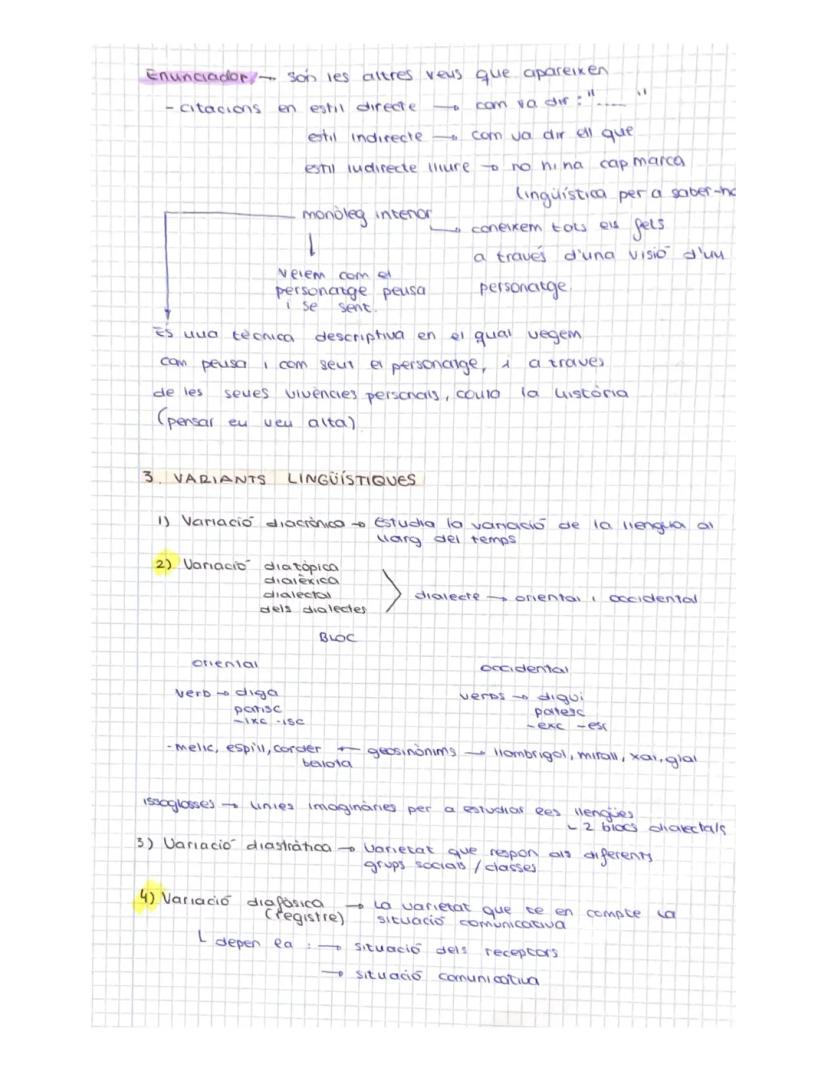 Enunciador → són les altres veus que apareixen
- citacions en estil directe → com va dir : "....."
estil indirecte → com va dir ell que
estil indirecte lliure → no hi ha cap marca
lingüística per a saber-ho
monòleg interior
→ coneixem tots els fets
a través d'una visió d'un
personatge.
Veiem com el
personatge pensa
i se sent.
És una tècnica descriptiva en el qual vegem
com pensa i com sent el personatge, i a traves
de les seues vivències personals, conta la història
(pensar en veu alta)
3. VARIANTS LINGÜÍSTIQUES
1) Variació diacrònica → estudia la variació de la llengua al
llarg del temps
2) Variació diatòpica
dialèxica
dialectal
dels dialectes
dialecte → oriental i occidental
BLOC
oriental occidental
verb → diga verbs → digui
patisc patesc
-ixc -isc -exc -esc
- melic, espill, corder ← geosinònims → llombrigol, mirall, xai, glal
bellota
issoglosses → línies imaginàries per a estudiar ees llengües
2 blocs dialectals
3) Variació diastràtica → varietat que respon als diferents
grups socials / classes
4) Variació diafàsica → La varietat que te en compte la
(registre) situació comunicativa
depen ea : → situació dels receptors
→ situació comunicativa